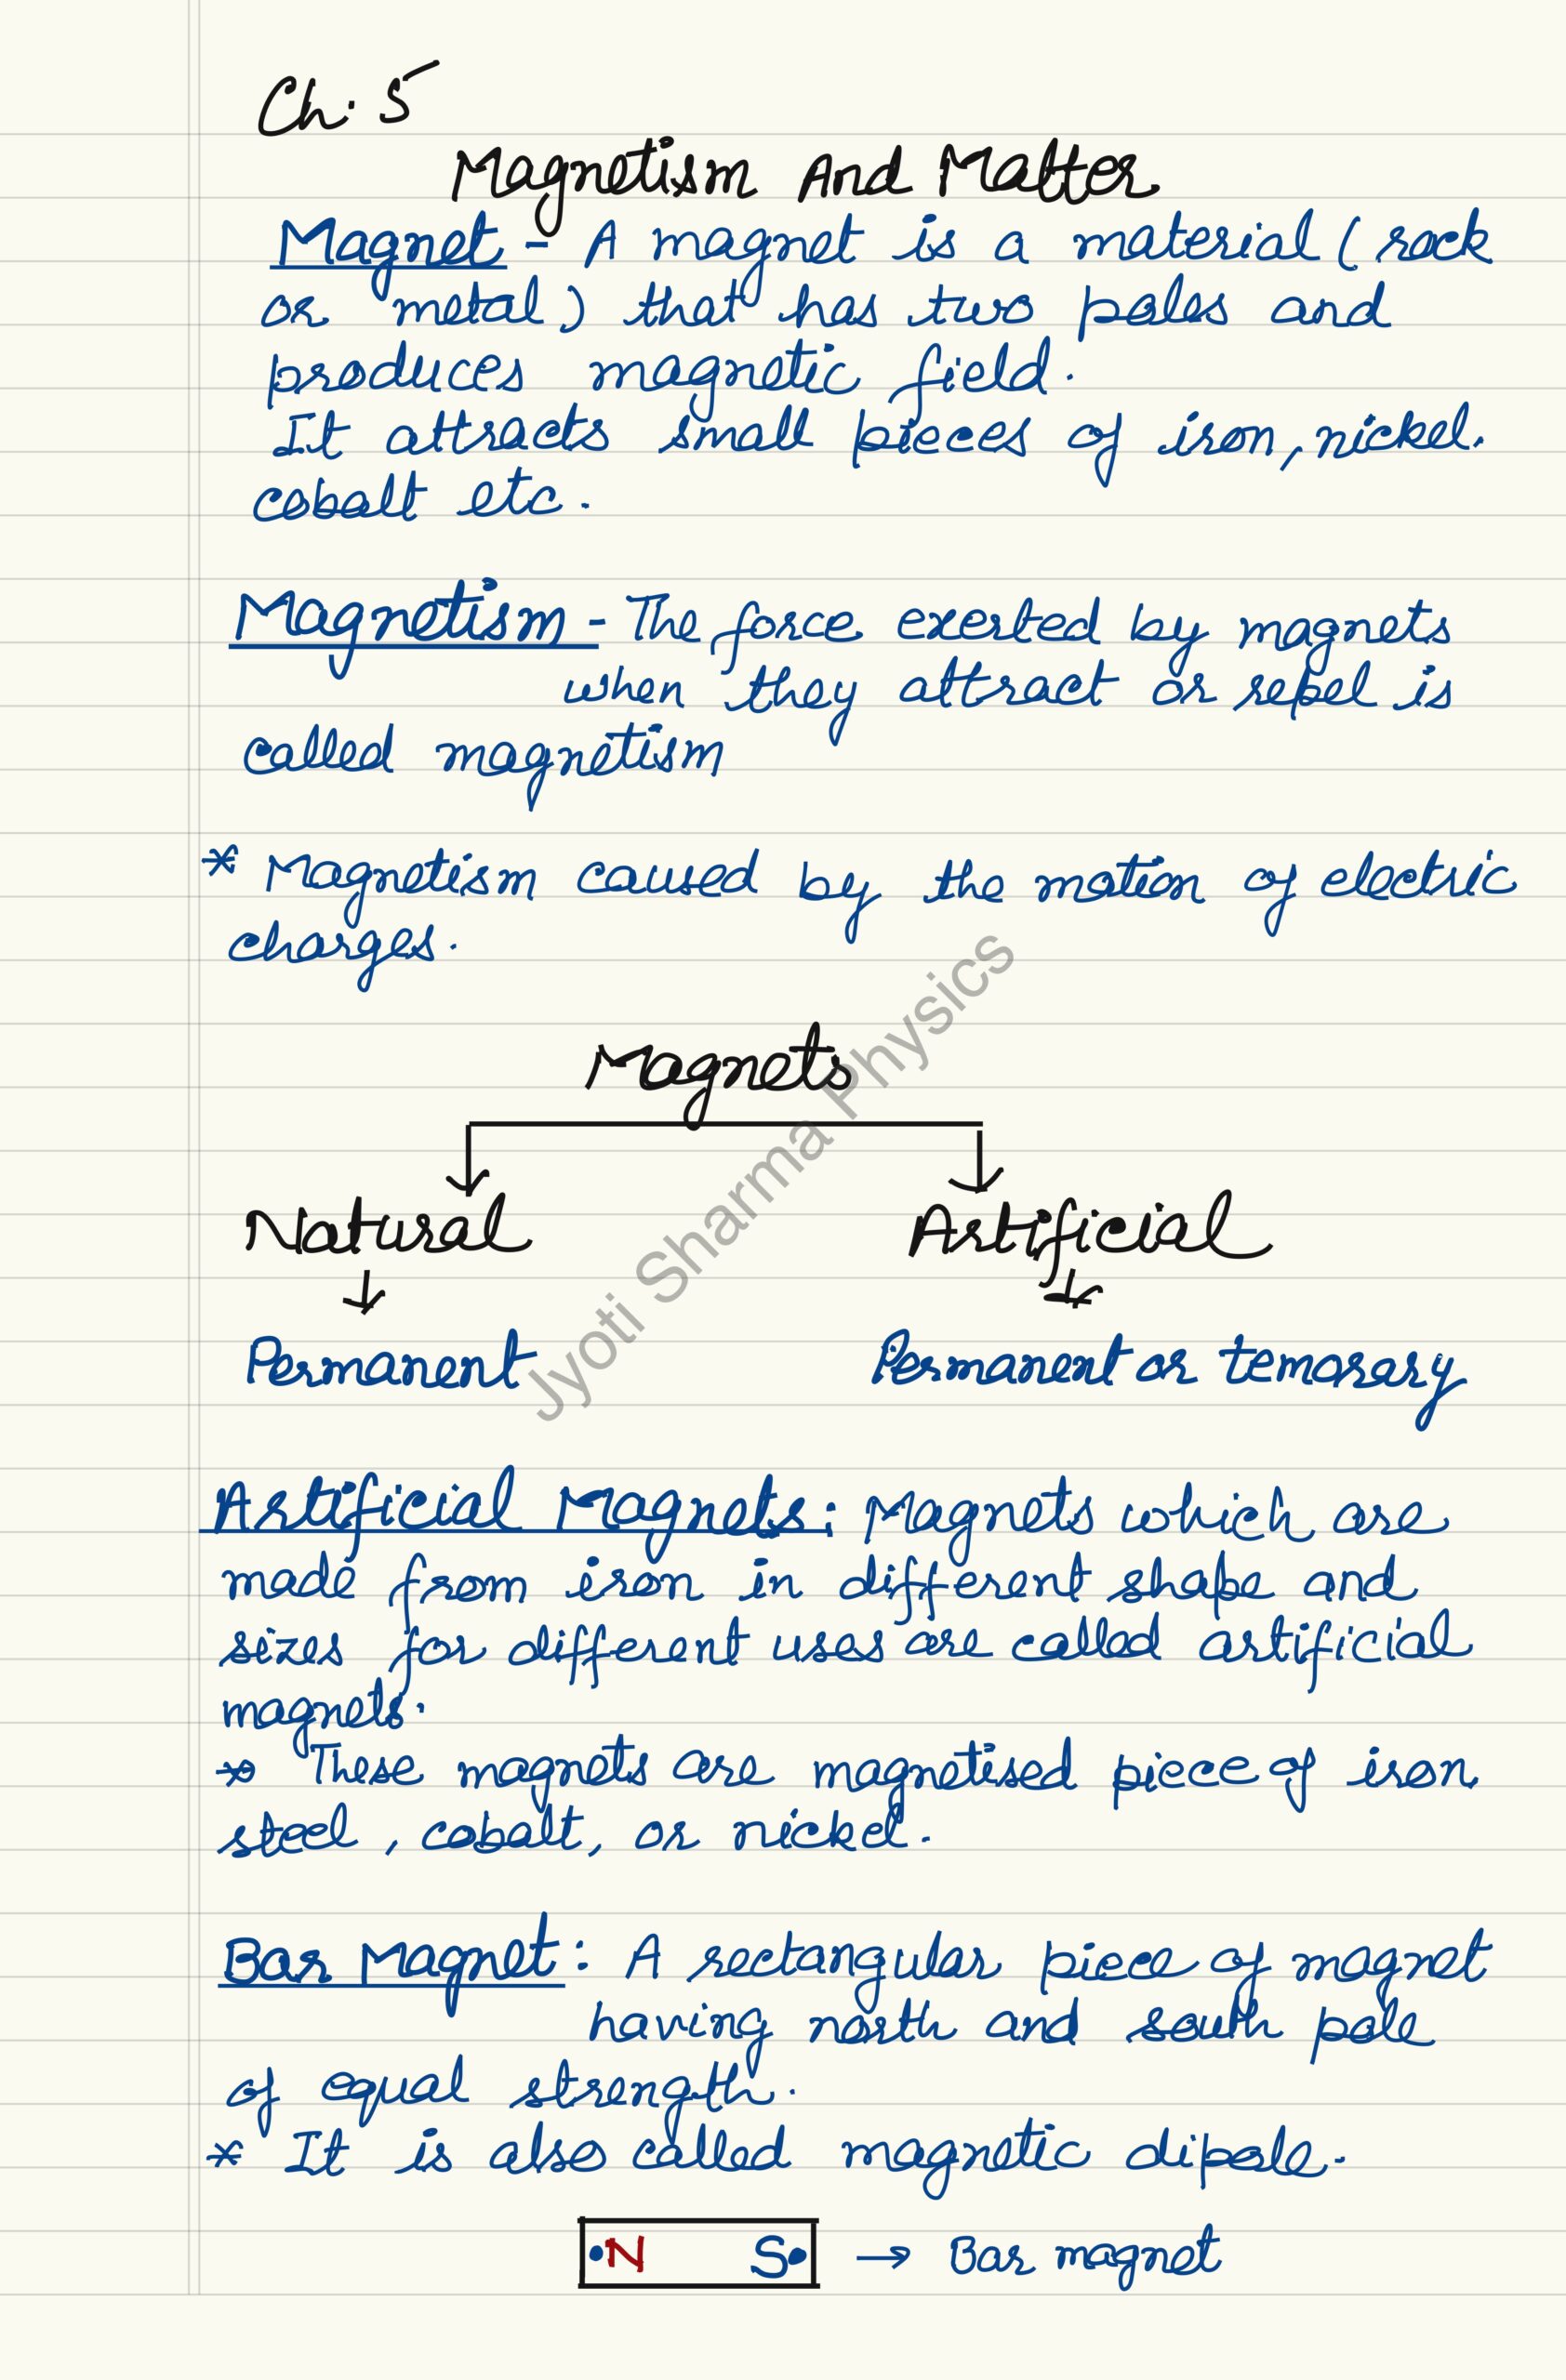 Ch. 5
Magnetism And Matter
Magnet - A magnet is a material (rock
or metal) that has two poles and
produces magnetic field.
It attracts small pieces of iron, nickel.
cobalt etc.
Magnetism - The force exerted by magnets
when they attract or repel is
called magnetism
* Magnetism caused by the motion of electric
charges.
Magnets
Natural Artificial
Permanent Permanent or temorary
Jyoti Sharma Physics
Artificial Magnets: Magnets which are
made from iron in different shape and
sizes for different uses are called artificial
magnets.
* These magnets are magnetised piece of iron
steel, cobalt, or nickel.
Bar Magnet: A rectangular piece of magnet
having north and south pole
of equal strength.
* It is also called magnetic dipole.
N S → Bar magnet